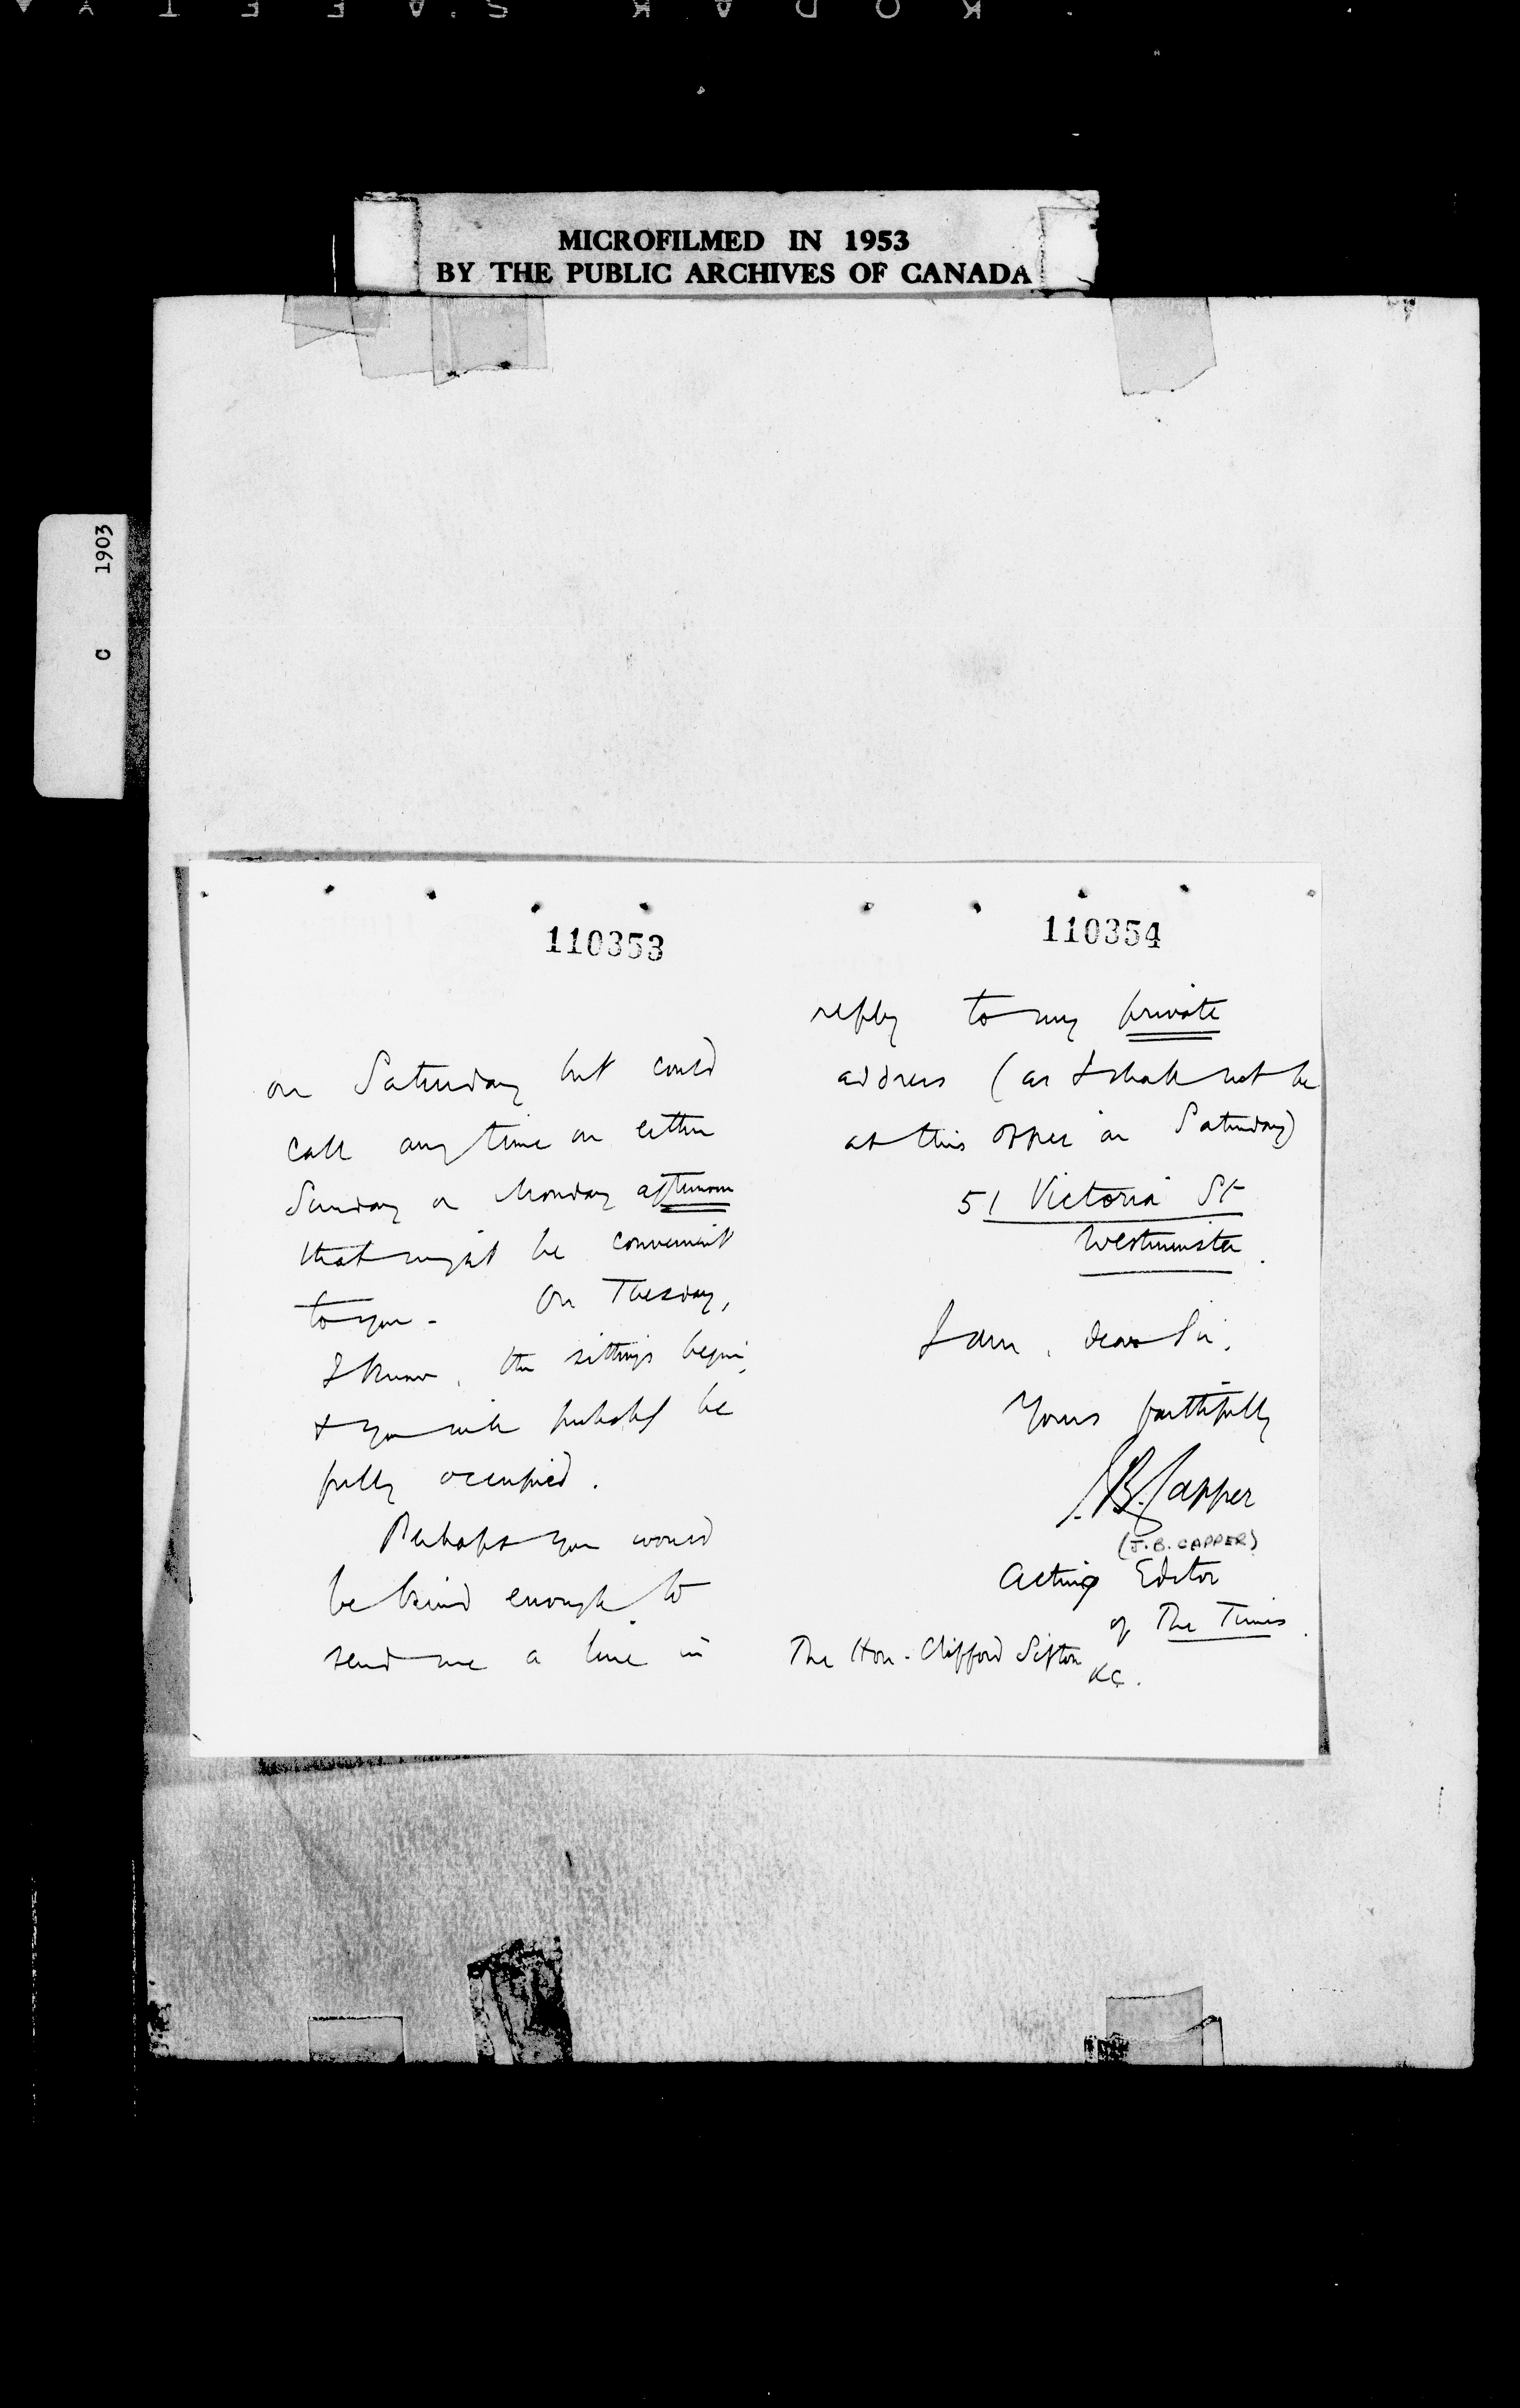 KODAK SAFETY
MICROFILMED IN 1953
BY THE PUBLIC ARCHIVES OF CANADA
C 1903
110353
on Saturday but could
call any time on either
Sunday or Monday afternoon
that might be convenient
to you - On Tuesday,
I know, the sittings begin,
& you will probably be
fully occupied.
Perhaps you would
be kind enough to
send me a line in
110354
reply to my private
address (as I shall not be
at this office on Saturday)
51 Victoria St
Westminster.
I am, dear Sir,
Yours faithfully
J.B. Capper
(J.B. CAPPER)
Acting Editor
of The Times.
The Hon. Clifford Sifton
K.C.